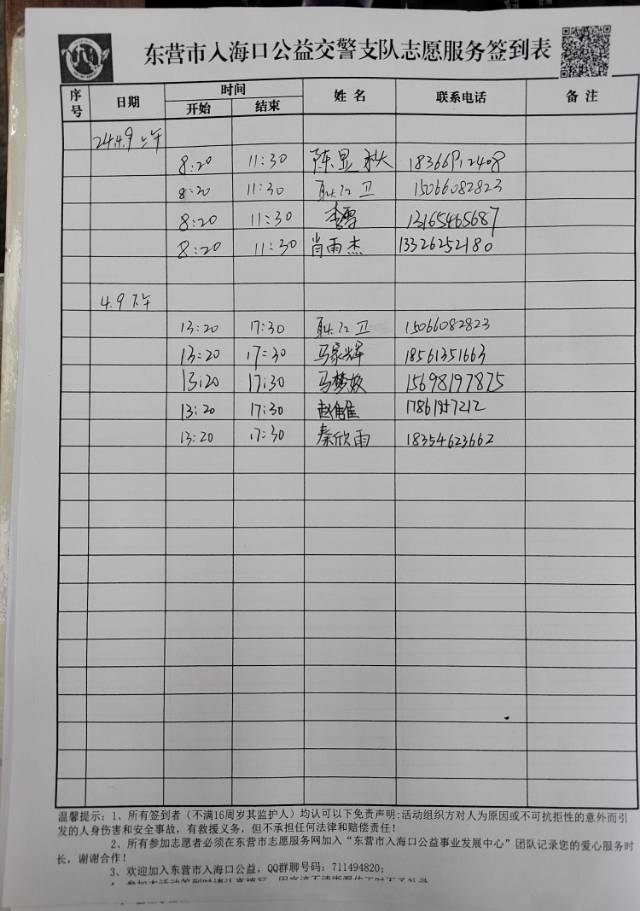 东营市入海口公益交警支队志愿服务签到表
序号 日期 时间 开始 结束 姓名 联系电话 备注
24.4.9 上午
8:20 11:30 陈显秋 18366912408
8:20 11:30 耿江卫 15066082823
8:20 11:30 李雪 13165465687
8:20 11:30 肖雨杰 13326252180
4.9 下午
13:20 17:30 耿江卫 15066082823
13:20 17:30 马家辉 18561351663
13:20 17:30 马梦姣 15698197875
13:20 17:30 17861957212
13:20 17:30 秦欣雨 18354623662
温馨提示：1、所有签到者（不满16周岁其监护人）均认可以下免责声明:活动组织方对人为原因或不可抗拒性的意外而引
发的人身伤害和安全事故，有救援义务，但不承担任何法律和赔偿责任！
2、所有参加志愿者必须在东营市志愿服务网加入“东营市入海口公益事业发展中心”团队记录您的爱心服务时
长，谢谢合作！
3、欢迎加入东营市入海口公益，QQ群聊号码：711494820；